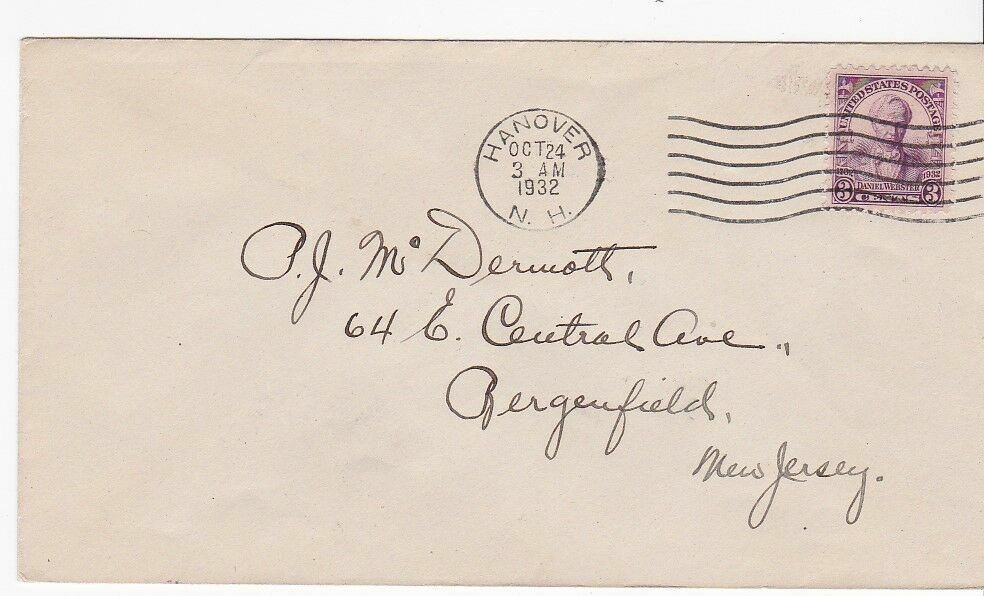 UNITED STATES POSTAGE
1932
DANIEL WEBSTER
3 3
HANOVER
OCT 24
3 AM
1932
N. H.
P. J. McDermott,
64 E. Central Ave.,
Bergenfield,
New Jersey.